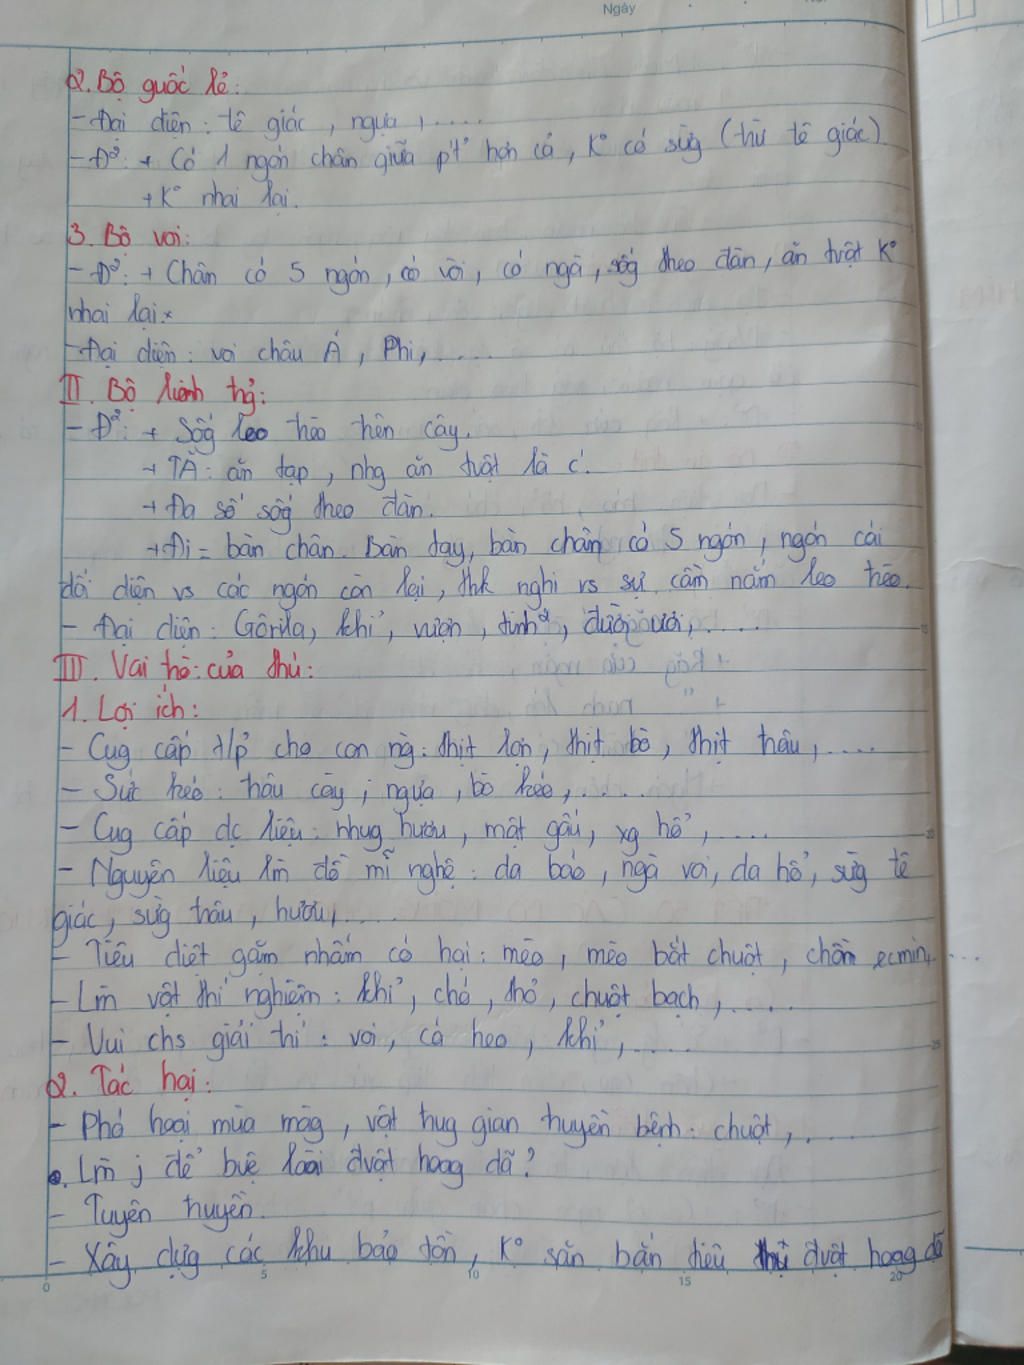 Ngày
2. Bộ guốc lẻ:
- Đại diện: tê giác, ngựa,.....
- Đ²: + Có 1 ngón chân giữa p't' hơn cả, K° có sừg (trừ tê giác).
+ K° nhai lại.
3. Bộ voi:
- Đ²: + Chân có 5 ngón, có vòi, có ngà, sốg theo đàn, ăn tvật K°
nhai lại.
- Đại diện: voi châu Á, Phi,.....
II. Bộ linh trg̉:
- Đ²: + Sốg leo trèo trên cây.
+ TĂ: ăn tạp, nhg ăn tvật là c'.
+ Đa số sốg theo đàn.
+ Đi = bàn chân. Bàn tay, bàn chân có 5 ngón, ngón cái
đối diện vs các ngón còn lại, thk nghi vs sự cầm nắm leo trèo.
- Đại diện: Gôrila, khỉ, vượn, tinh², đười ươi,.....
III. Vai trò của thú:
1. Lợi ích:
- Cug cấp t/p' cho con ng̀: thịt lợn, thịt bò, thịt trâu,....
- Sức kéo: trâu cày, ngựa, bò kéo,.....
- Cug cấp dc liệu: nhug hươu, mật gấu, xg hổ,....
- Nguyên liệu lm̀ đồ mĩ nghệ: da báo, ngà voi, da hổ, sừg tê
giác, sừg trâu, hươu,....
- Tiêu diệt gặm nhấm có hại: mèo, mèo bắt chuột, chồn ecmin,...
- Lm̀ vật thí nghiệm: khỉ, chó, thỏ, chuột bạch,.....
- Vui chs giải trí: voi, cá heo, khỉ,.....
2. Tác hại:
- Phá hoại mùa màg, vật trug gian truyền bệnh: chuột,....
. Lm̀ j để bvệ loài đvật hoag dã?
- Tuyên truyền.
- Xây dựg các khu bảo tồn, K° săn bắn tiêu thụ đvật hoag dã
0 5 10 15 20